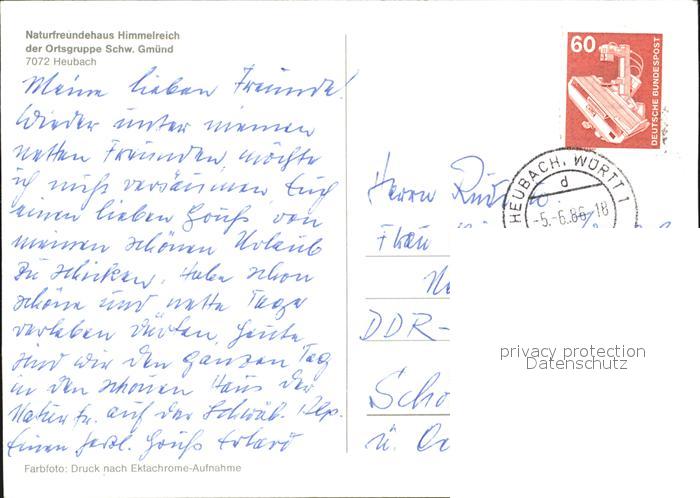 Naturfreundehaus Himmelreich
der Ortsgruppe Schw. Gmünd
7072 Heubach
Meine lieben Freunde!
Wieder unter meinen
netten Freunden, möchte
ich nicht versäumen Euch
einen lieben Gruß von
meinen schönen Urlaub
zu schicken. Habe schon
schöne und nette Tage
verleben dürfen, heute
sind wir den ganzen Tag
in den schönen Haus der
Natur fr. auf der Schwäb. Alp.
Einen herzl. Gruß Erhard
Farbfoto: Druck nach Ektachrome-Aufnahme
60
DEUTSCHE BUNDESPOST
HEUBACH, WÜRTT 1
d
-5.-6.86-18
Herrn
Frau
DDR-
Scho
u.
privacy protection
Datenschutz